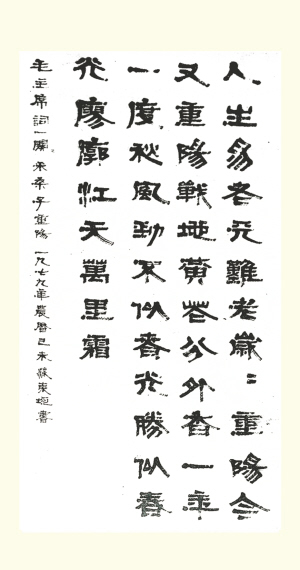 人生易老天難老歲〻重陽今
又重陽戰地黄花分外香一年
一度秋風勁不似春光勝似春
光廖廓江天萬里霜
毛主席詞一闋采桑子重陽一九七九年農曆己未蘇東書